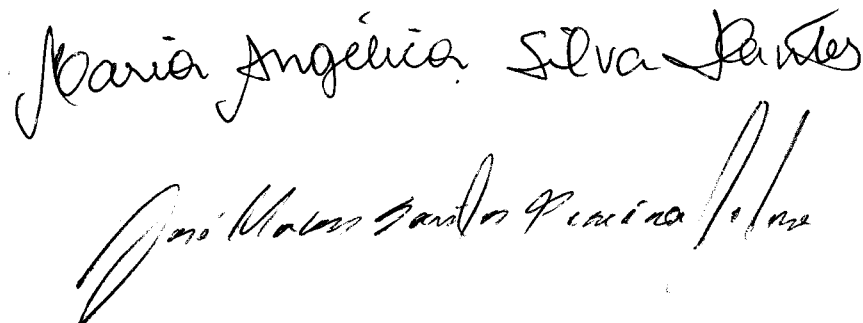 Maria Angélica Silva Santos
José Marcos Santos Pereira